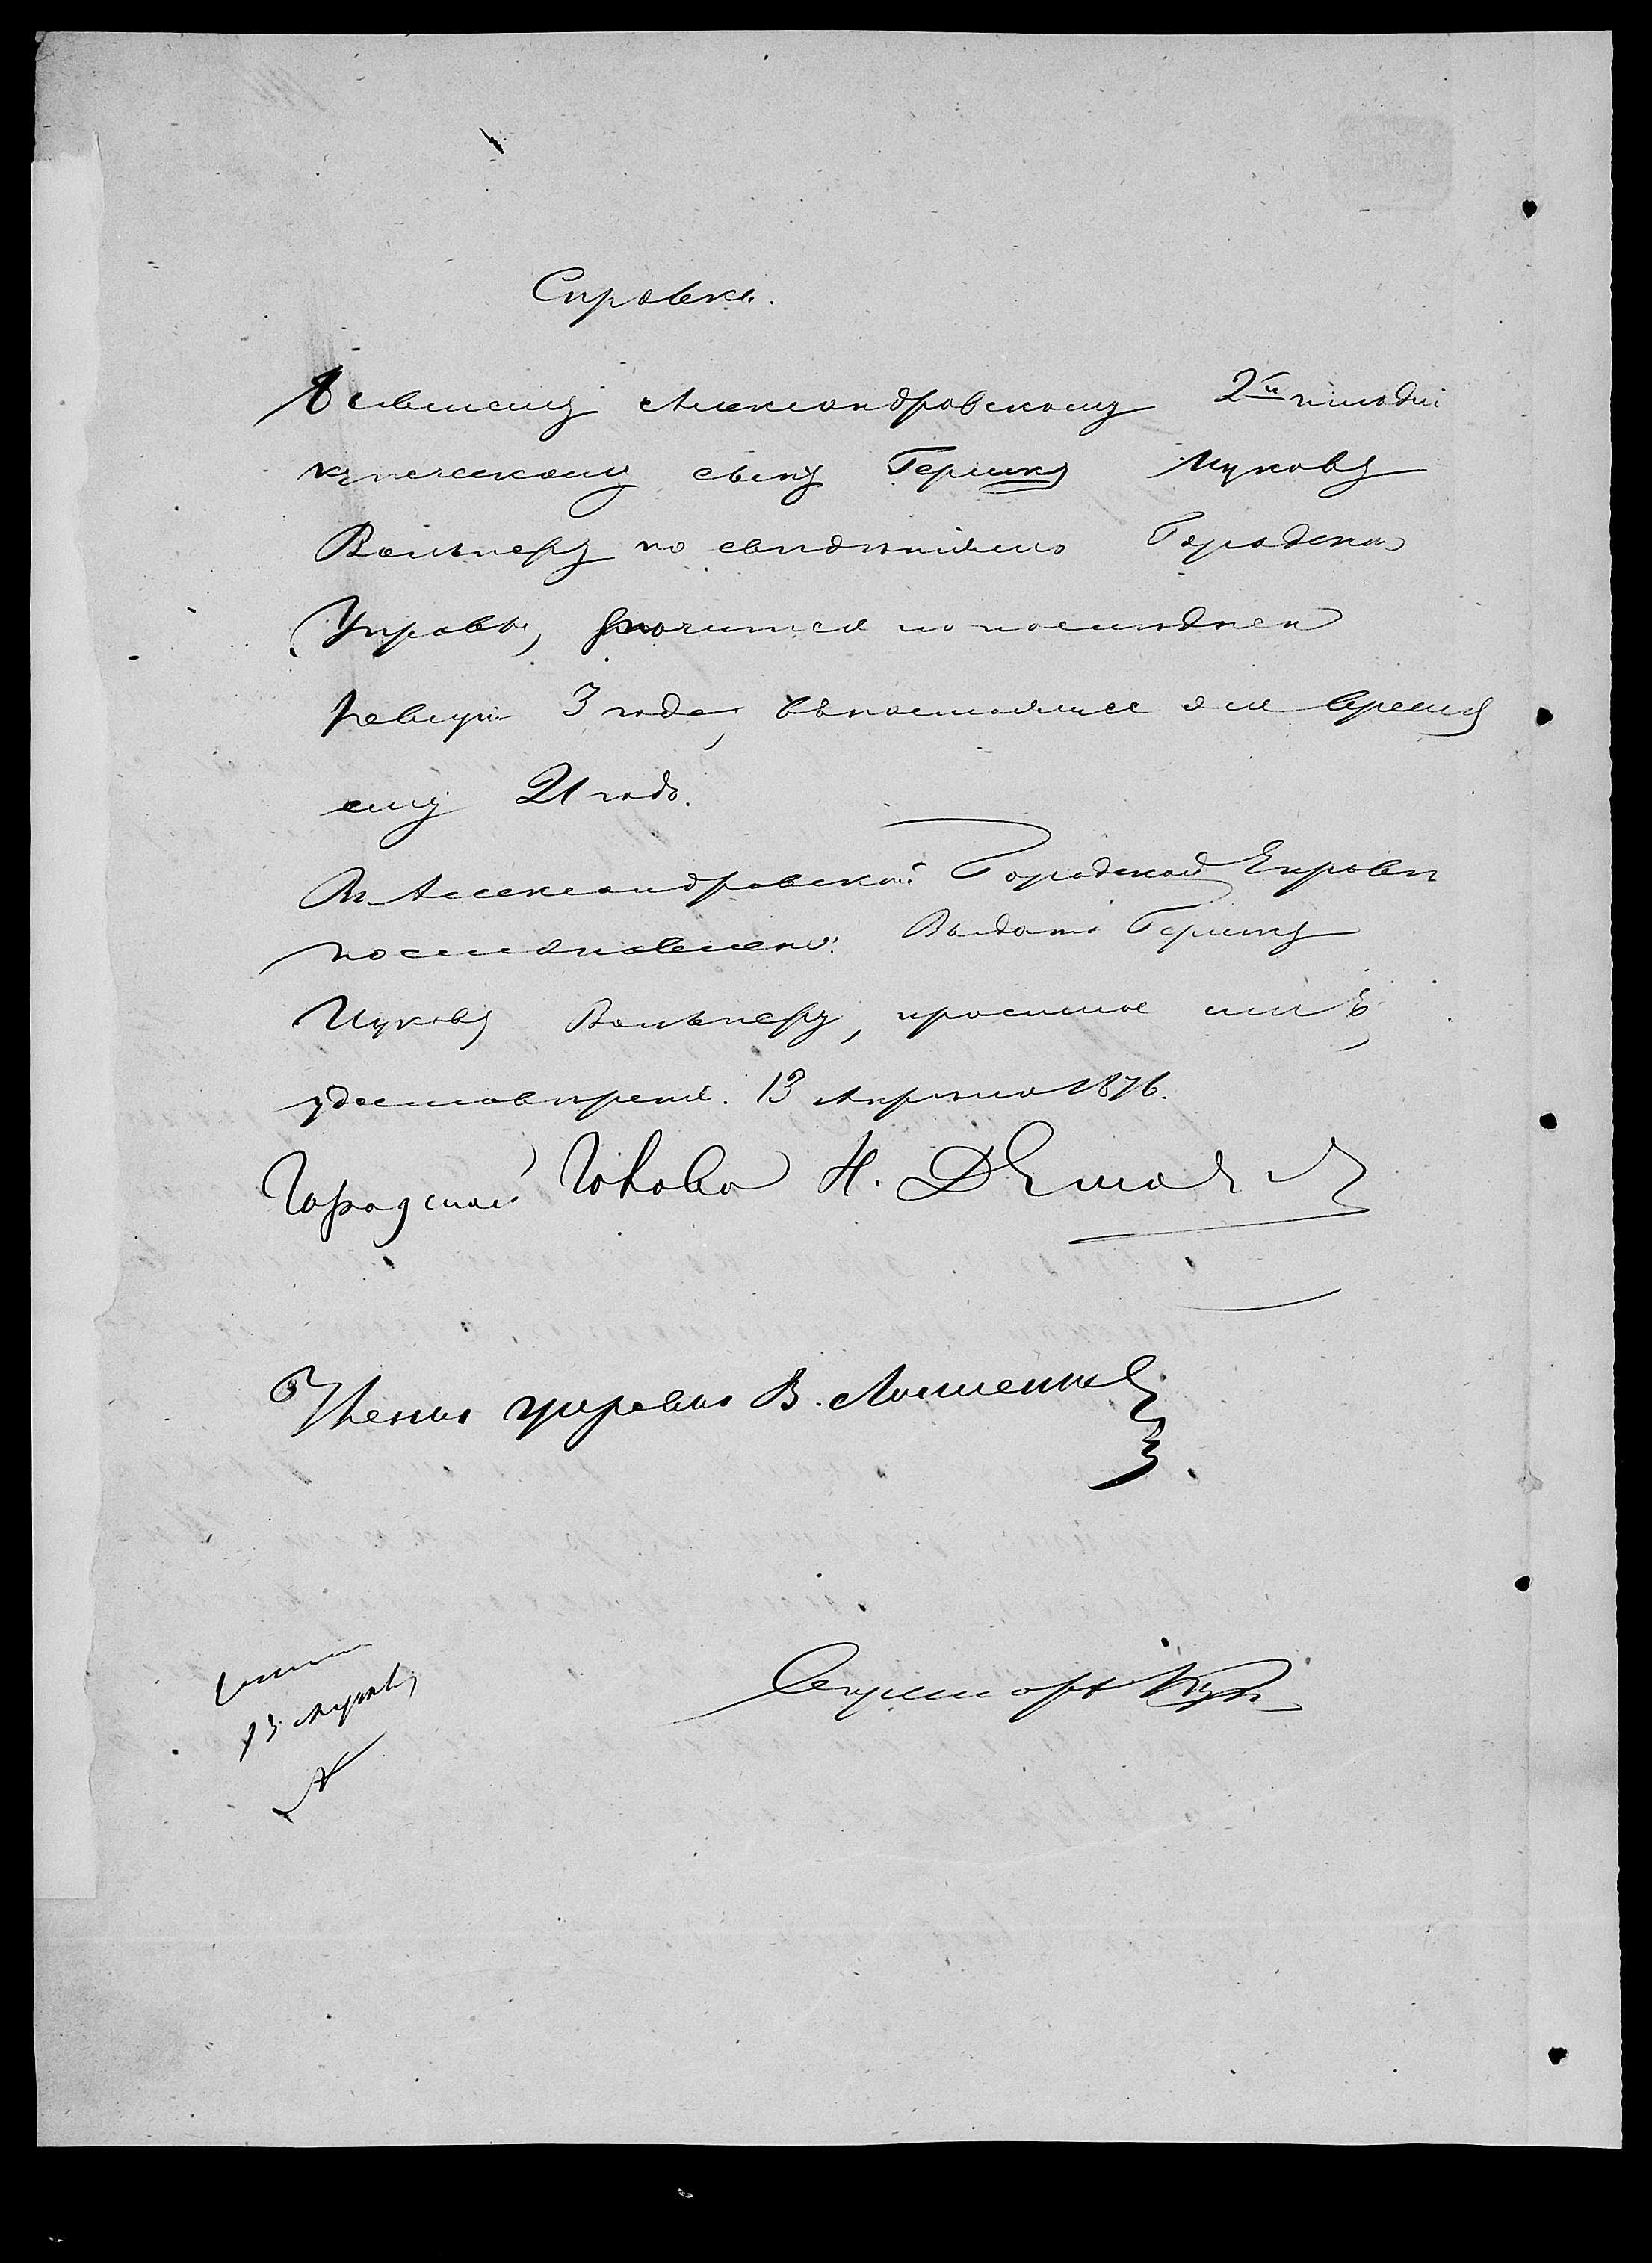 Справка.
Александровскому 2й гильдіи
купеческому сыну Гершку Ицкову
Вольперу по свидѣніямъ Городской
Управы, значится по послѣдней
ревизіи 3 года, въ настоящее же время
ему 21 годъ.
Въ Александровской Городской Управѣ
постановлено: Выдать Гершку
Ицкову Вольперу, просимое имъ
удостовѣреніе. 13 Апрѣля 1876.
Городской Голова Н.
Членъ управы В.
Секретарь
13 Апрѣля